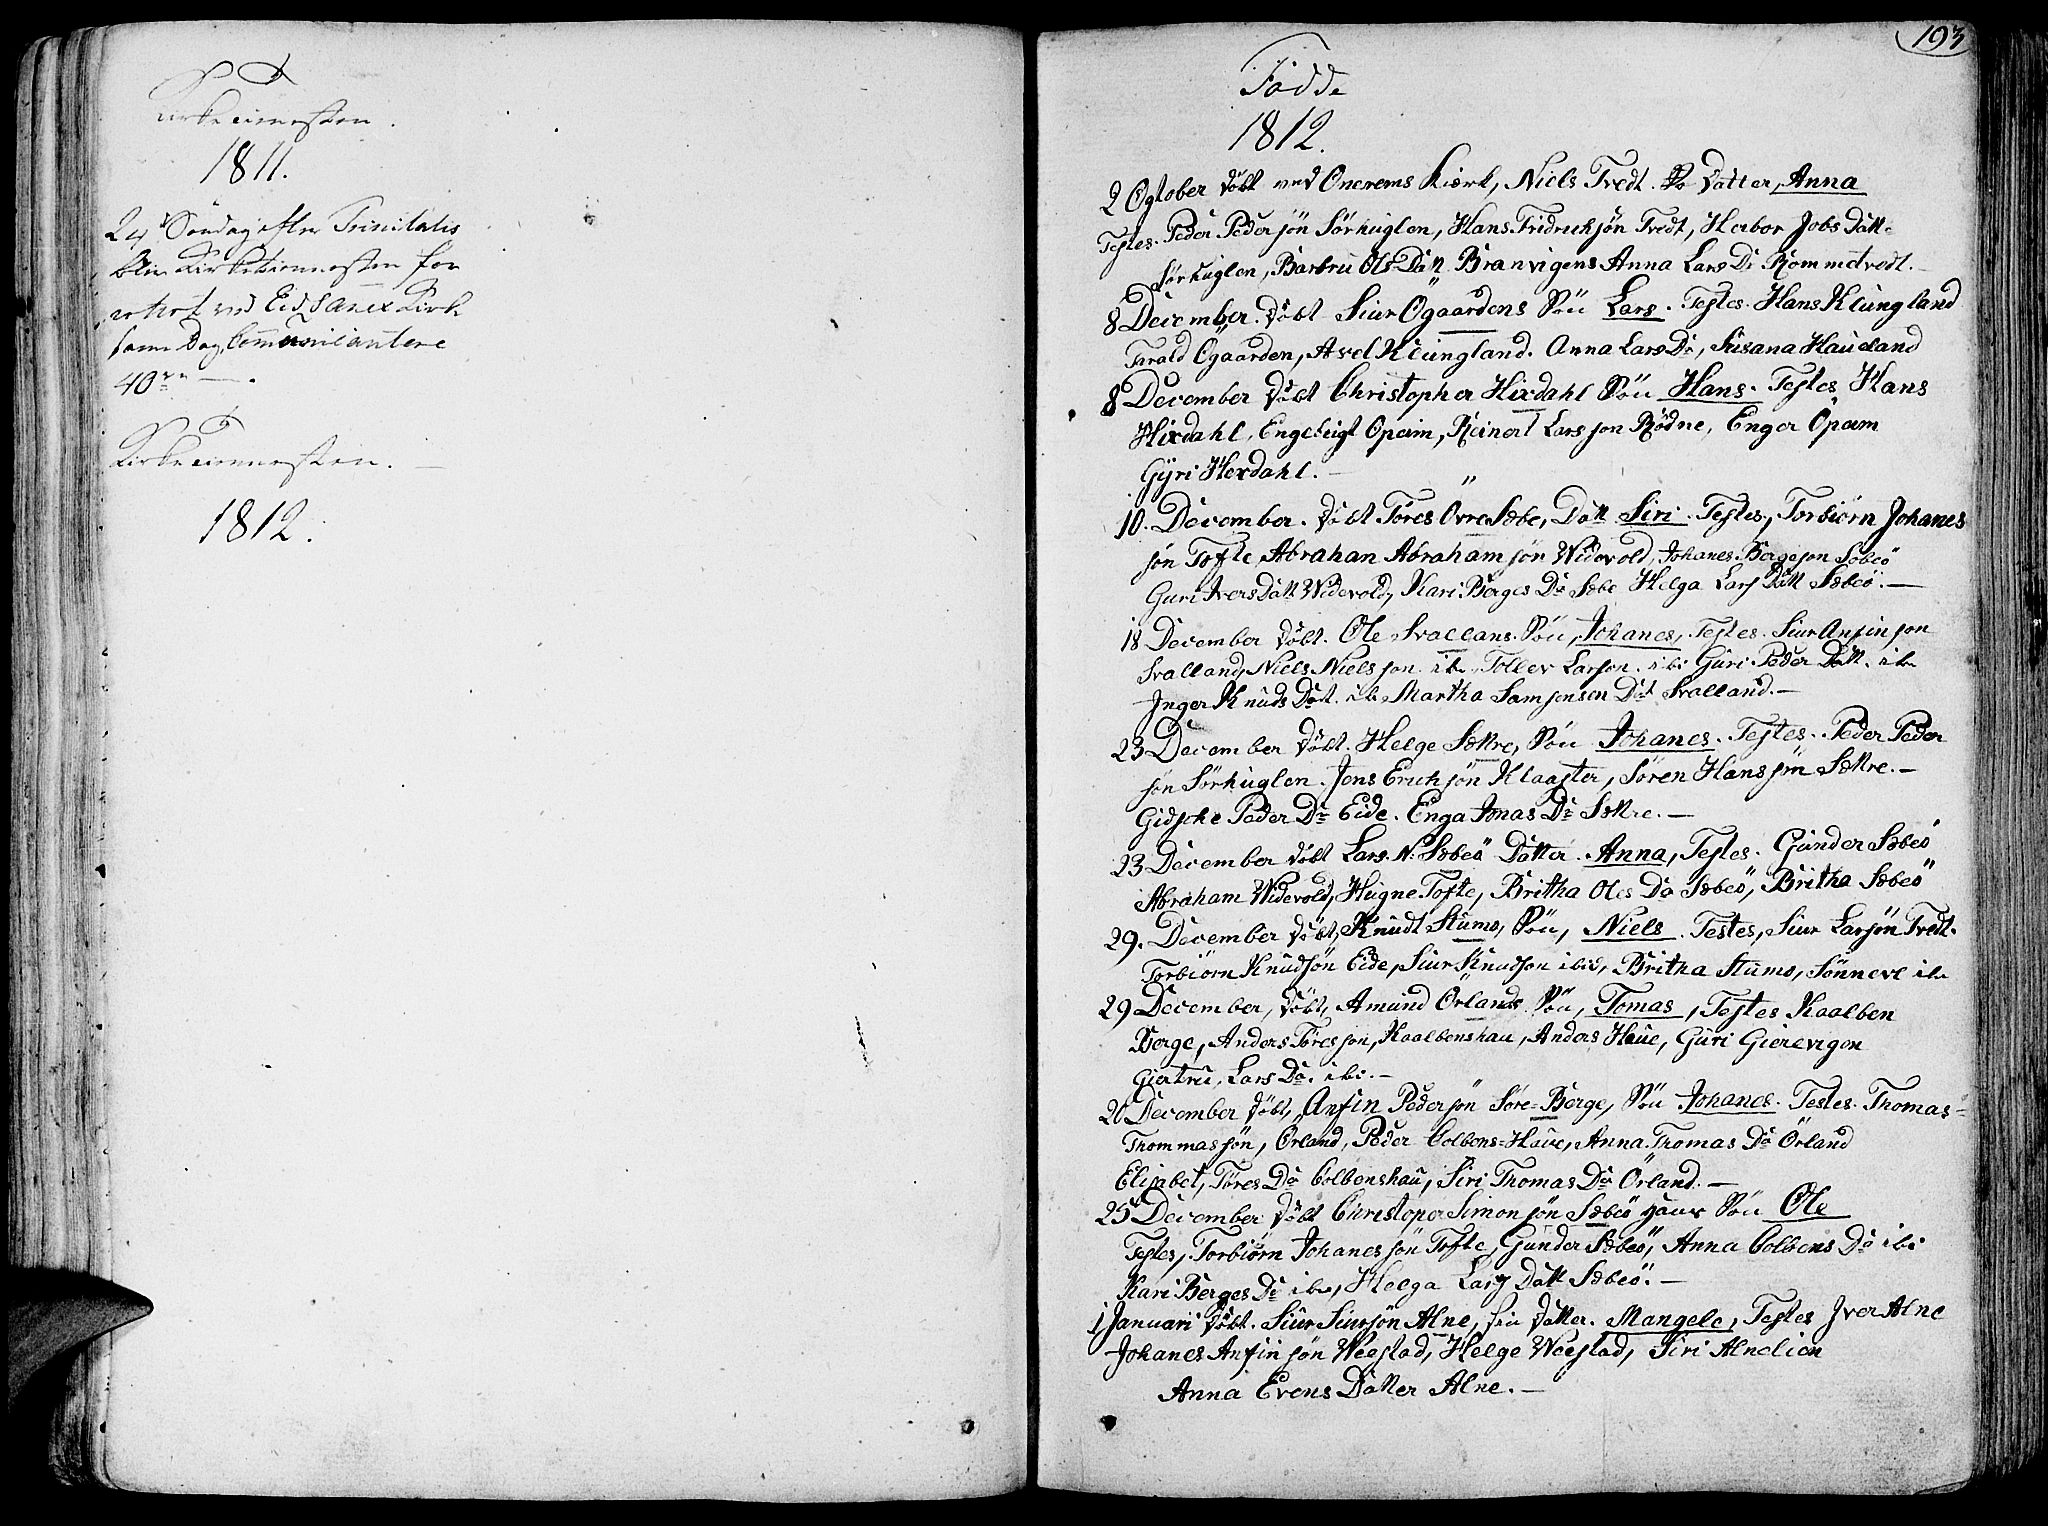 1811.
24 Søndag efter Trinitatis
samme Dag Communicantere
40
1812.
193
Fødde
1812.
2 October døbt ved Kirke, Niels Tvedt Datter, Anna
Testes. Peder Pedersøn Sørhuglen, Hans Fridrichsøn Tvedt, Herbor Jobs Datt
Sørhuglen, Barbru Ols Datt Branvigens Anna Lars Dr Rommetvedt.
8 December. døbt Siur Øgaardens Søn Lars. Testes. Hans Klungland
Øgaarden, Axel Klungland. Anna Lars Dr, Susana Haueland
8 December døbt Christopher Hixdahl Søn Hans. Testes Hans
Hixdahl, Opeim, Reinert Larssøn Rødne, Enger Opeim
Gyri Hexdahl.
10. December. døbt Tores ØvreSæbe, Datt Siri. Testes, Torbiørn Johanes
søn Tofte, Abrahan Abrahamsøn Widevold, Johanes Bergeson Sæbeö
Guri Ivers Datt Widevold, Kari Berges Dr Sæbe Helga Lars Datt Sæbeö.
18 December døbt. Ole Svallans Søn, Johanes, Testes. Siur Anfinson
Svalland, Niels Nielsson ibi Tollev Larson ibi Guri Peder Datt. ibi
Inger Knuds Datt. ibi Martha Samsonsen Dat Svalland.
23 December døbt. Helge Sætre, Søn Johanes. Testes. Peder Peder
søn Sørhuglen. Jens Erichsøn Klaaster, Søren Hanssøn Sætre.
Gidske Peder Dr Eide. Enga Jonas Dr Sætre.
23 December døbt Lars N. Sæbeö Datter. Anna, Testes. Gunder Sæbeö
Abraham Widevold, Hugne Tofte, Britha Oles Dr Sæbeö, Britha Sæbeö
29. December døbt, Knudt Stumo, Søn, Niels. Testes, Siur Larsøn Tvedt.
Torbiørn Knudsøn Eide, Siur Knudson ibid, Britha Stumo, Sønneve ibi
29 December, døbt, Amund Ørlands Søn, Tomas, Testes Kaalben
Berge, Anders Toresson, Kaalbenshau, Anders Haue, Guri Gierevigen
Giertru, Lars Dr. ibi.
20 December døbt, Anfin Pedersøn Søre-Berge, Søn Johanes. Testes. Thomas
Thommassøn, Ørland, Peder Colbens-Haue, Anna Thomas Dr Ørland
Elisabet, Tøres Dr Colbenshau, Siri Thomas Dr Ørland.
25 December døbt Christoper Simonsøn Sæbeö hans Søn Ole
Testes, Torbiørn Johanessøn Tofte, Gunder Sæbeö, Anna Colbens Dr ibi
Kari Berges Dr ibi, Helga Lars Datt Sæbeö.
1 Januari døbt. Siur Siursøn Alne, sin Datter. Mangele, Testes Iver Alne
Johanes Anfinsøn Weestad, Helge Weestad, Siri Alnelien
Anna Evens Datter Alne.